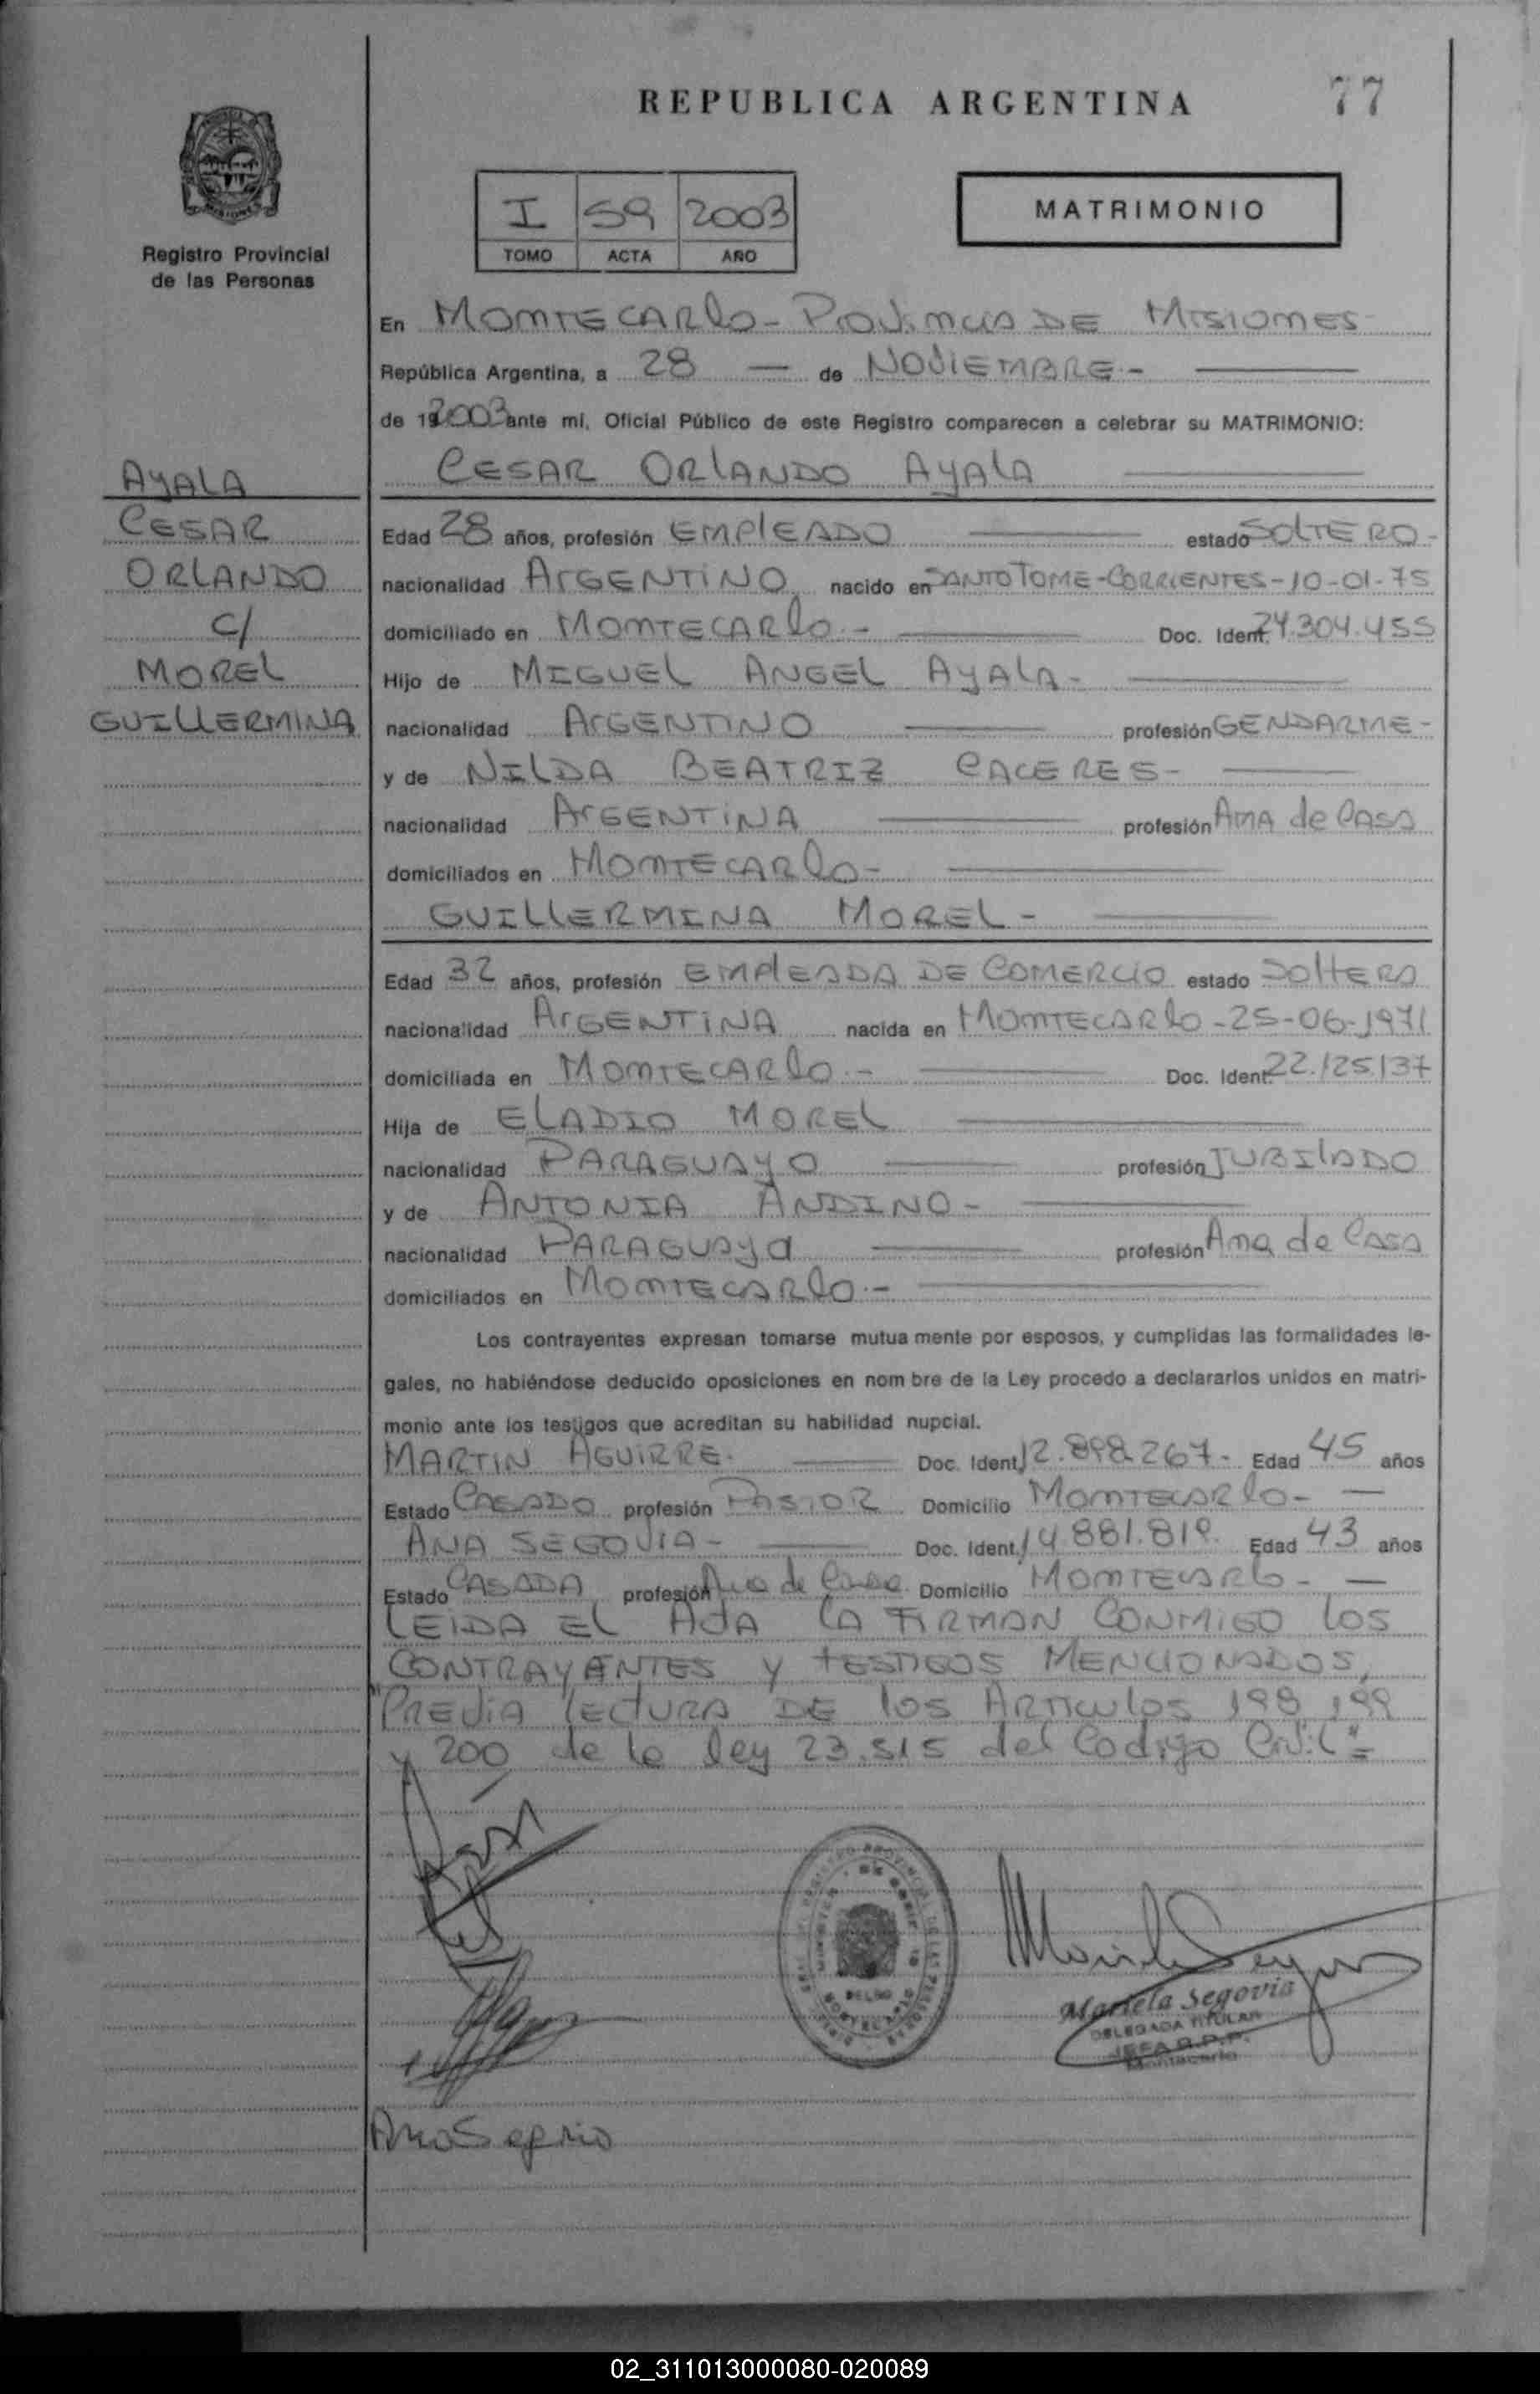 77
REPUBLICA ARGENTINA
I 59 2003
TOMO ACTA AÑO
MATRIMONIO
Registro Provincial
de las Personas
AYALA
CESAR
ORLANDO
C/
MOREL
GUILLERMINA
En MONTECARLO - PROVINCIA DE MISIONES
República Argentina, a 28 — de NOVIEMBRE -
de 2003 ante mí, Oficial Público de este Registro comparecen a celebrar su MATRIMONIO:
CESAR ORLANDO AYALA
Edad 28 años, profesión EMPLEADO estado SOLTERO -
nacionalidad ARGENTINO nacido en SANTO TOME - CORRIENTES - 10-01-75
domiciliado en MONTECARLO.- Doc. Ident. 24.304.455
Hijo de MIGUEL ANGEL AYALA -
nacionalidad ARGENTINO profesión GENDARME -
y de NILDA BEATRIZ CACERES -
nacionalidad ARGENTINA profesión Ama de Casa
domiciliados en MONTECARLO -
GUILLERMINA MOREL -
Edad 32 años, profesión EMPLEADA DE COMERCIO estado SOLTERA
nacionalidad ARGENTINA nacida en MONTECARLO - 25-06-1971
domiciliada en MONTECARLO.- Doc. Ident. 22.125.137
Hija de ELADIO MOREL
nacionalidad PARAGUAYO profesión JUBILADO
y de ANTONIA ANDINO -
nacionalidad PARAGUAYA profesión Ama de Casa
domiciliados en MONTECARLO.-
Los contrayentes expresan tomarse mutua mente por esposos, y cumplidas las formalidades le-
gales, no habiéndose deducido oposiciones en nom bre de la Ley procedo a declararlos unidos en matri-
monio ante los testigos que acreditan su habilidad nupcial.
MARTIN AGUIRRE. Doc. Ident. 12.898.267 - Edad 45 años
Estado CASADO profesión PASTOR Domicilio MONTECARLO - —
ANA SEGOVIA - Doc. Ident. 14.881.819. Edad 43 años
Estado CASADA profesión Ama de Casa. Domicilio MONTECARLO - —
LEIDA EL ACTA LA FIRMAN CONMIGO LOS
CONTRAYANTES Y TESTIGOS MENCIONADOS,
"PREVIA LECTURA DE LOS ARTICULOS 198, 199
y 200 de la ley 23.515 del Codigo Civil" =
Mariela Segovia
DELEGADA TITULAR
JEFA R.P.P.
Montecarlo
Ana Segovia
02_311013000080-020089